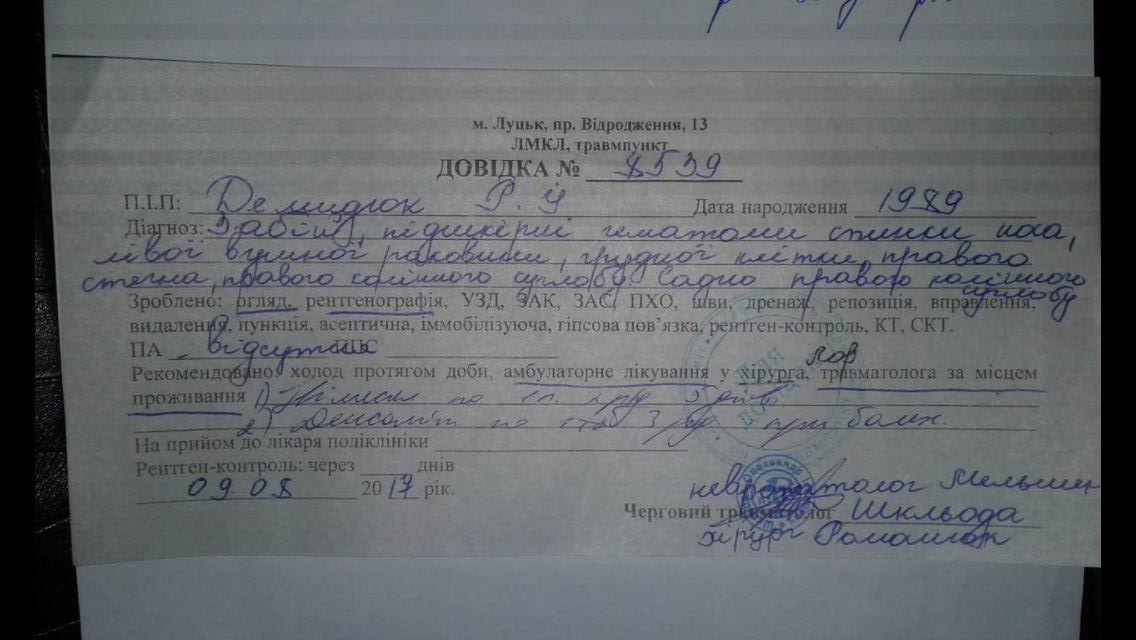 м. Луцьк, пр. Відродження, 13
ЛМКЛ, травмпункт
ДОВІДКА № 8539
П.І.П: Демидюк Р. У Дата народження 1989
Діагноз: Забій, підшкірні гематоми спинки носа,
лівої вушної раковини, грудної клітки, правого
стегна, правого колінного суглобу. Садно правого колінного
суглобу
Зроблено: огляд, рентгенографія, УЗД, ЗАК, ЗАС, ПХО, шви, дренаж, репозиція, вправлення,
видалення, пункція, асептична, іммобілізуюча, гіпсова пов’язка, рентген-контроль, КТ, СКТ.
ПА відсутня ППС
лор
Рекомендовано: холод протягом доби, амбулаторне лікування у хірурга, травматолога за місцем
проживання 1) по 1 п. 5 днів
2). по 1 таб 3 р/д при болях.
На прийом до лікаря поліклініки
Рентген-контроль: через днів
09 08 2017 рік.
Для довідок
невропатолог
Черговий травматолог Шкльода
хірург Романюк